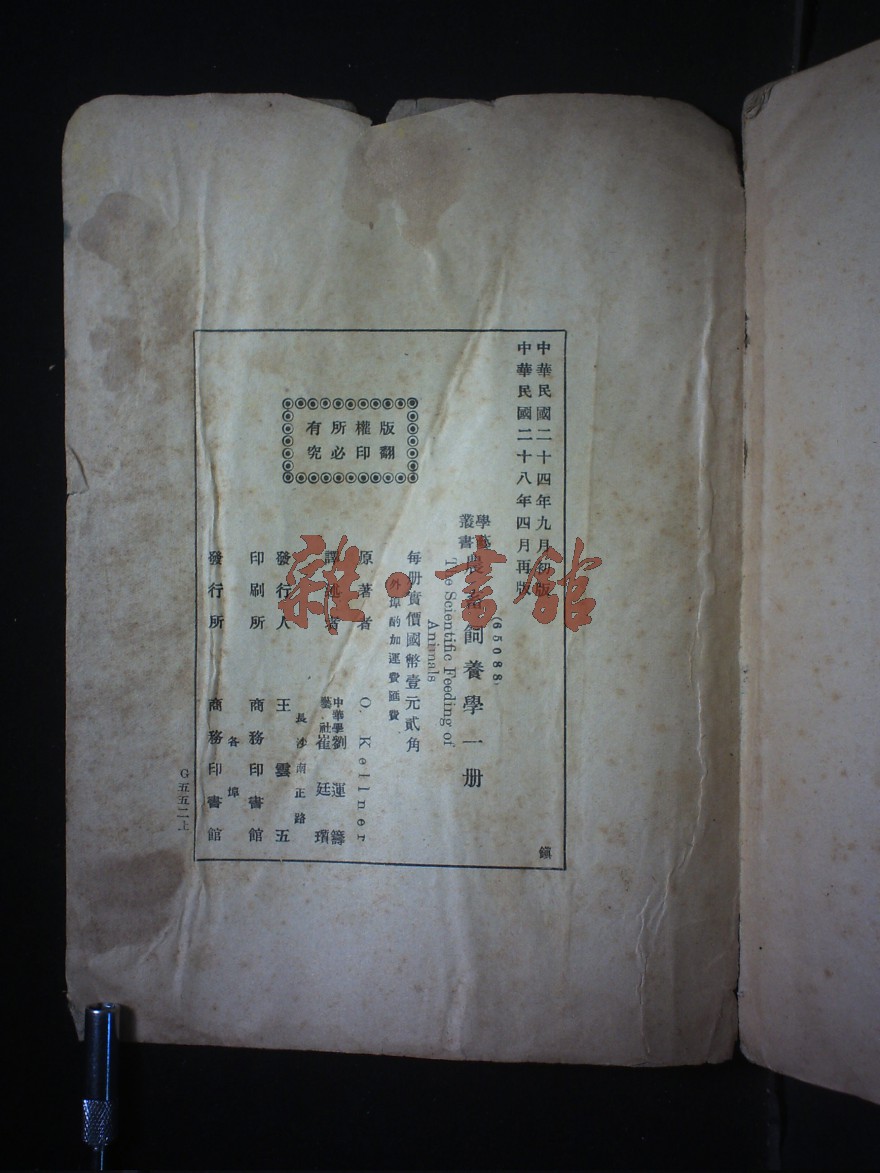 中華民國二十四年九月初版
中華民國二十八年四月再版
(65088)
學藝叢書 農畜飼養學一册
The Scientific Feeding of
Animals
每册實價國幣壹元貳角
外埠酌加運費匯費
版權所有
翻印必究
原著者 O. Kellner
譯述者 中華學藝社 劉運籌 崔廷瓚
長沙南正路
發行人 王雲五
印刷所 商務印書館
各埠
發行所 商務印書館
鎮
G五五二上
雜·書館